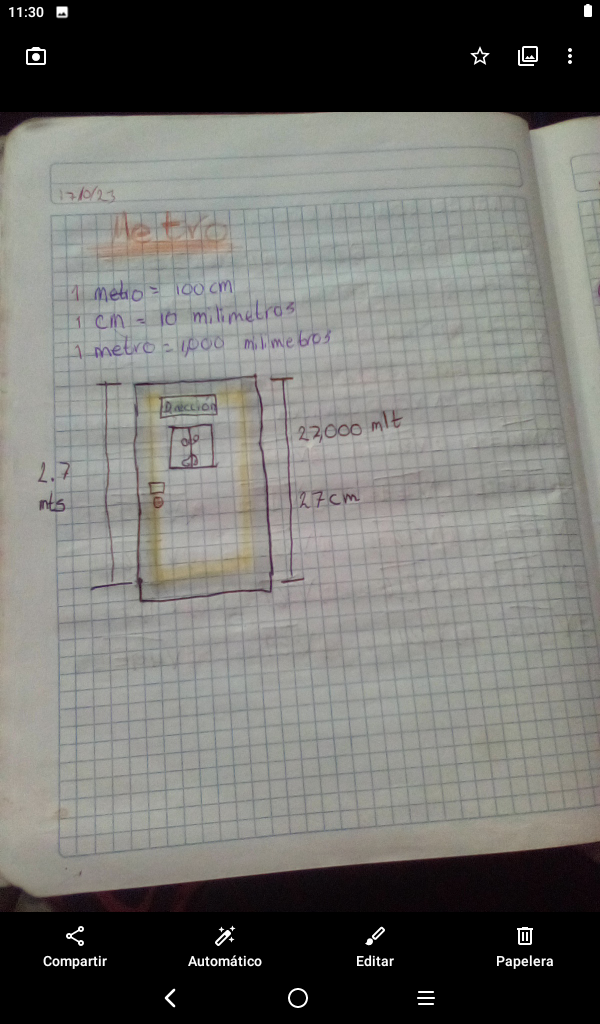 11:30
17/0/23
Metro
1 metro = 100 cm
1 cm = 10 milimetros
1 metro = 1,000 milimetros
Dirección
2.7
mts
27,000 mlt
27cm
Compartir
Automático
Editar
Papelera